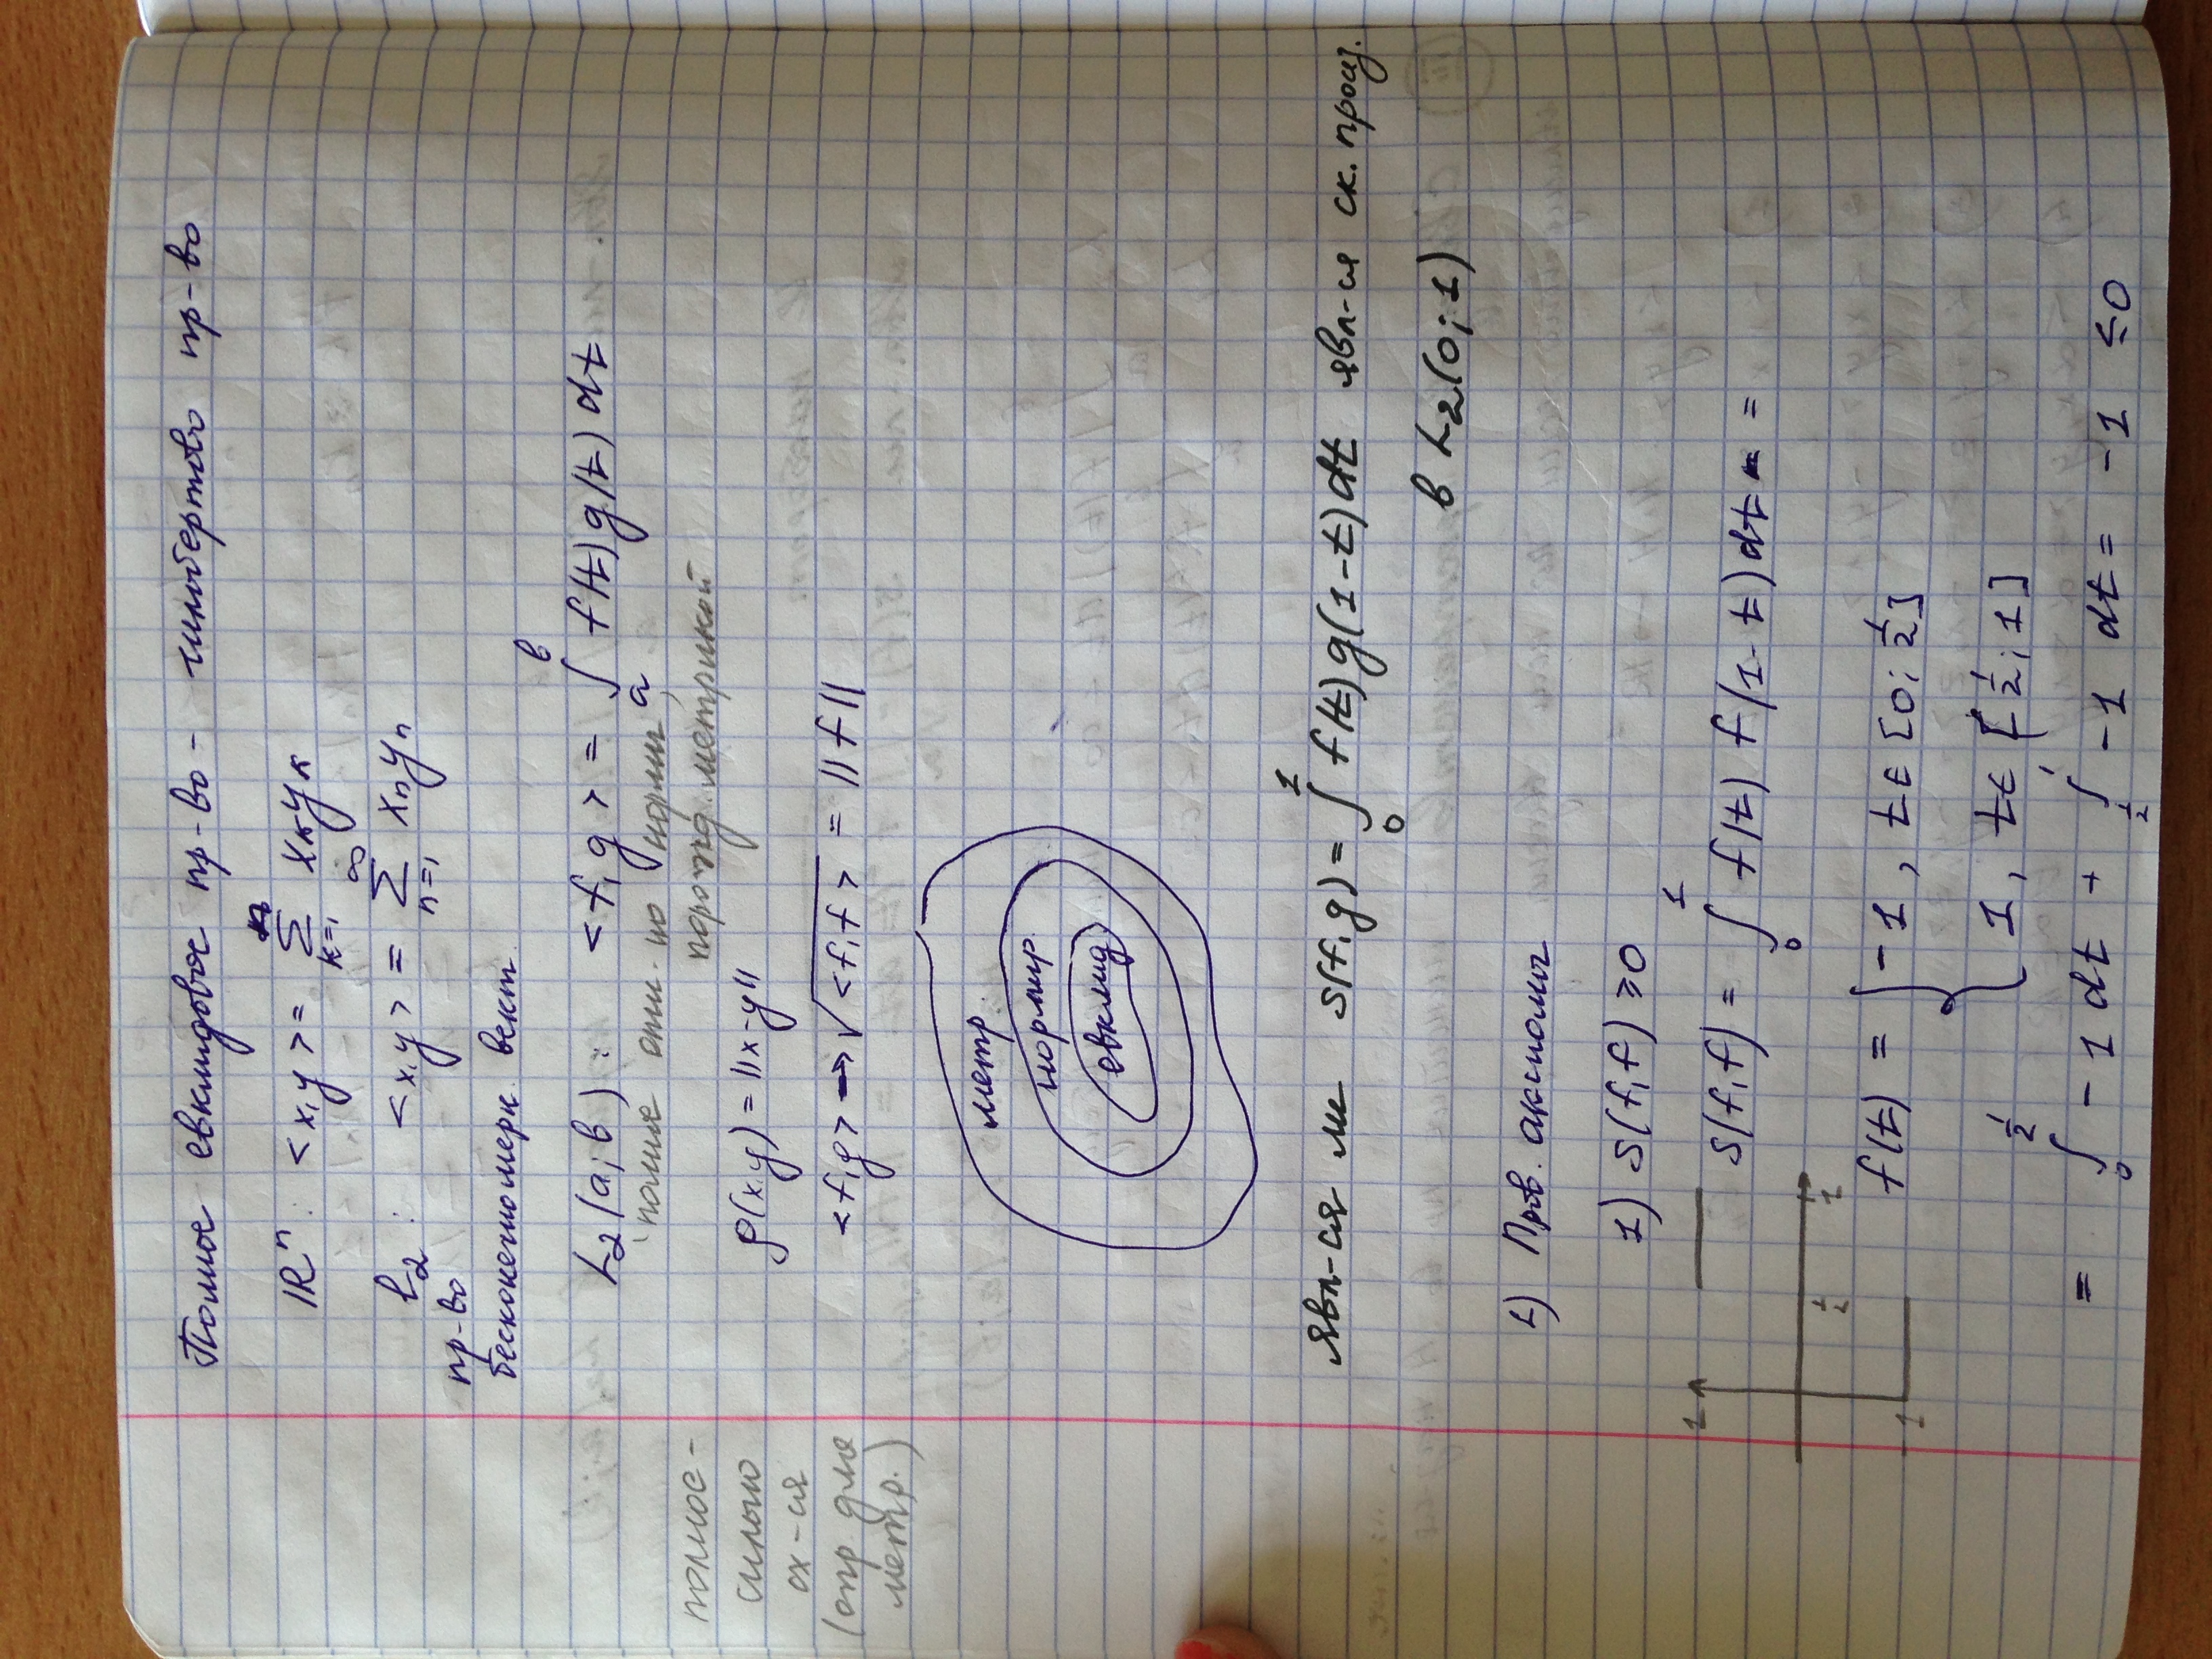 Полное евклидовое пр-во - гильбертово пр-во
ℝⁿ: <x,y> = ∑ₖ₌₁ⁿ xₖyₖ
l₂: <x,y> = ∑ₙ₌₁^∞ xₙyₙ
пр-во
бесконечномерн. вект.
L₂(a;b): <f,g> = ∫ₐᵇ f(t)g(t)dt
полные отн-но нормы
порожд. метрикой
полнос-
сильно
сх-ся
(опр для
метр.)
ρ(x,y) = ||x-y||
<f,g> → √<f,f> = ||f||
метр.
нормир.
евклид
явл-ся ли S(f,g) = ∫₀¹ f(t)g(1-t)dt явл-ся ск. произ.
в L₂(0;1)
1) Пров. аксиомы
1) S(f,f) ≥ 0
S(f,f) = ∫₀¹ f(t) f(1-t)dt =
1
1/2
1
1
f(t) = { -1, t∈[0; 1/2]
1, t∈[1/2; 1]
= ∫₀^(1/2) -1 dt + ∫_(1/2)^1 -1 dt = -1 ≤ 0